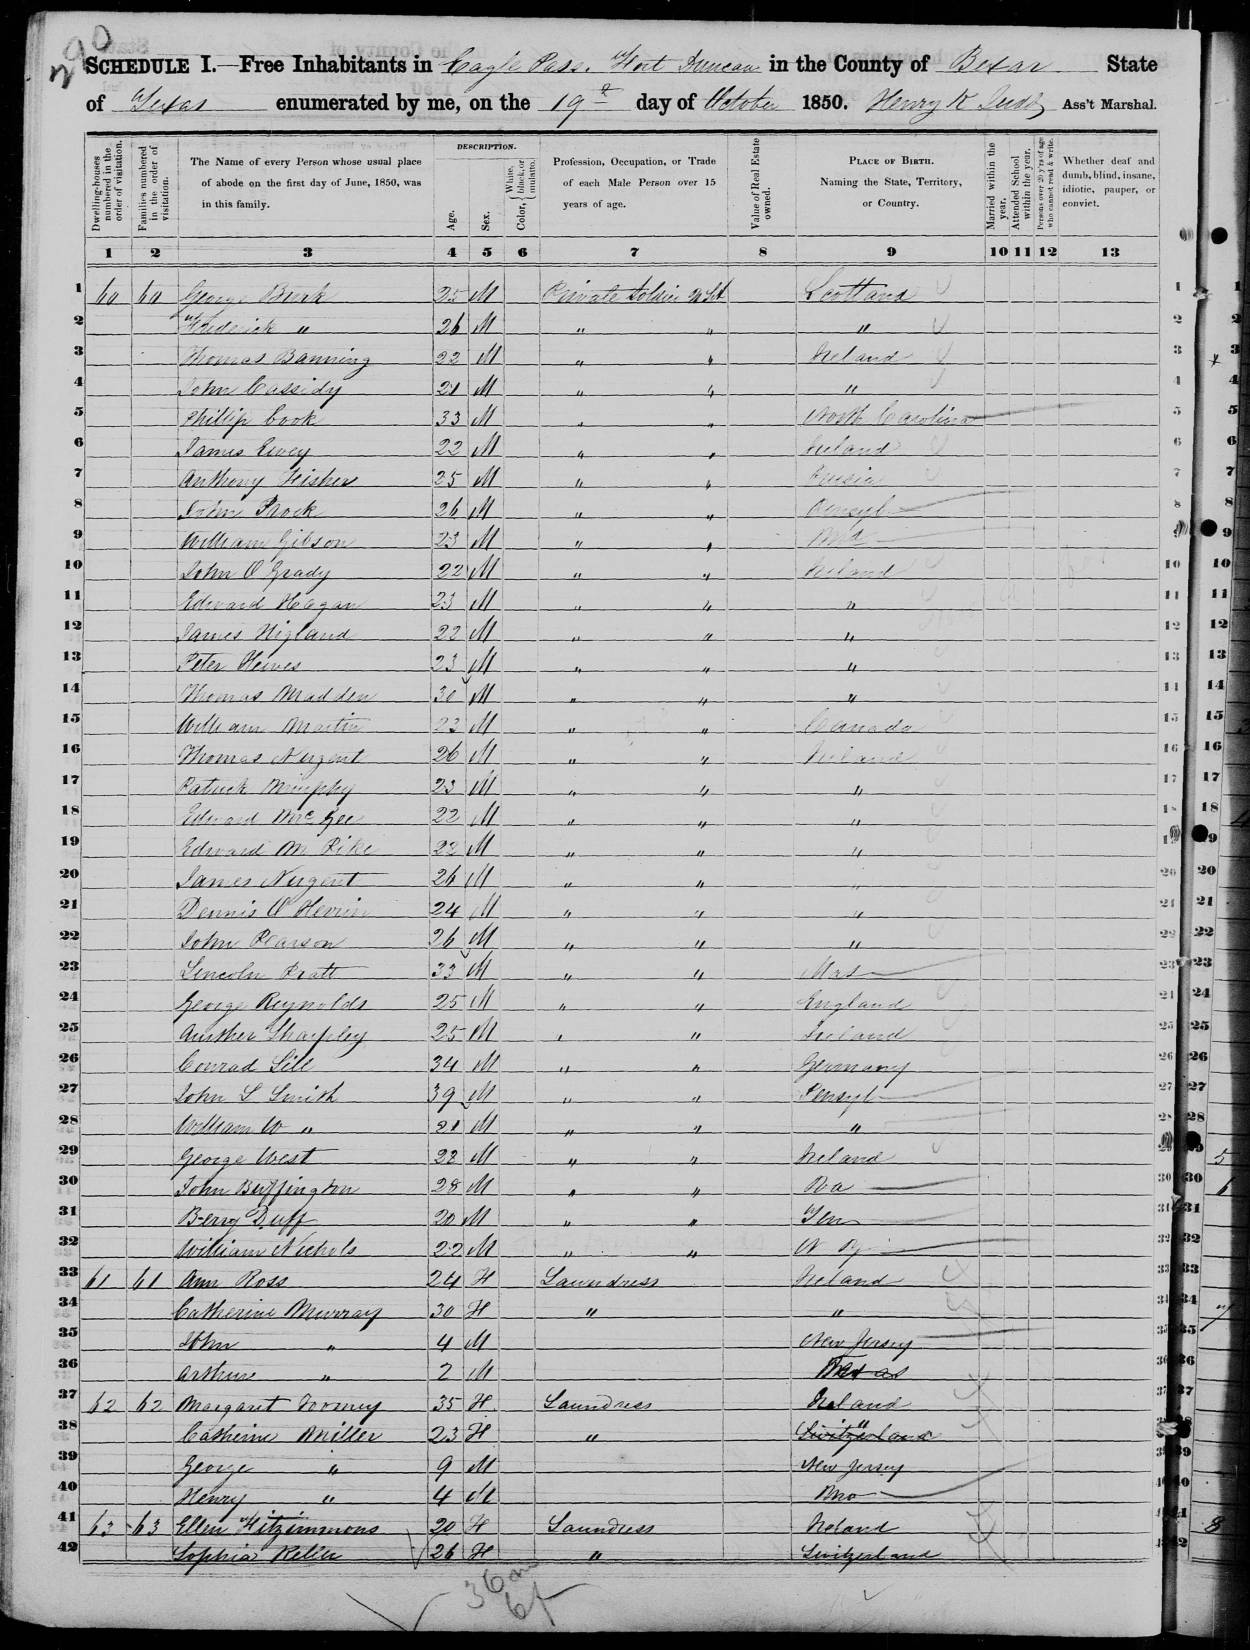 290
SCHEDULE I.—Free Inhabitants in Eagle Pass. Fort Duncan in the County of Bexar State
of Texas enumerated by me, on the 19th day of October 1850. Henry K Judd Ass't Marshal.
Dwelling-houses numbered in the order of visitation.
Families numbered in the order of visitation.
The Name of every Person whose usual place of abode on the first day of June, 1850, was in this family.
DESCRIPTION.
Age.
Sex.
Color, { White, black, or mulatto.
Profession, Occupation, or Trade of each Male Person over 15 years of age.
Value of Real Estate owned.
PLACE OF BIRTH. Naming the State, Territory, or Country.
Married within the year.
Attended School within the year.
Persons over 20 y'rs of age who cannot read & write.
Whether deaf and dumb, blind, insane, idiotic, pauper, or convict.
1 2 3 4 5 6 7 8 9 10 11 12 13
1 60 60 George Burk 25 M Private Soldier Scotland 1
2 Frederick " 26 M " " " 2
3 Thomas Banning 22 M " " Ireland 3
4 John Cassidy 21 M " " " 4
5 Phillip Cook 33 M " " North Carolina 5
6 James Ewey 22 M " " Ireland 6
7 Anthony Fisher 25 M " " 7
8 Frock 26 M " " Pensyl 8
9 William Gibson 23 M " " Md 9
10 John O Grady 22 M " " Ireland 10
11 Edward Hagan 23 M " " " 11
12 James Higland 22 M " " " 12
13 Peter Hewes 23 M " " " 13
14 Thomas Madden 30 M " " " 14
15 William Martin 23 M " " Canada 15
16 Thomas Nugent 26 M " " Ireland 16
17 Patrick Murphy 23 M " " " 17
18 Edward McGee 22 M " " " 18
19 Edward M Pike 22 M " " " 19
20 James Nugent 26 M " " " 20
21 Dennis O 24 M " " " 21
22 John Pearson 26 M " " " 22
23 Lincoln Pratt 33 M " " Mas 23
24 George Reynolds 25 M " " England 24
25 Sharpley 25 M " " Ireland 25
26 Conrad Sill 34 M " " Germany 26
27 John S Smith 39 M " " Pensyl 27
28 William W " 21 M " " " 28
29 George West 22 M " " Ireland 29
30 John Buffington 28 M " " 30
31 Berry Duff 20 M " " Ten 31
32 William Nichols 22 M " " N Y 32
33 61 61 Ann Ross 24 F Laundress Ireland 33
34 Catherine Murray 30 F " " 34
35 John " 4 M New Jersey 35
36 Arthur " 2 M Texas 36
37 62 62 Margaret Toomey 35 F Laundress Ireland 37
38 Catherine Miller 23 F " Switzerland " 38
39 George " 9 M New Jersey 39
40 Henry " 4 M Mo 40
41 63 63 Ellen Fitzimmons 20 F Laundress Ireland 41
42 Sophia Keller 26 F " Switzerland 42
36 m
6 f